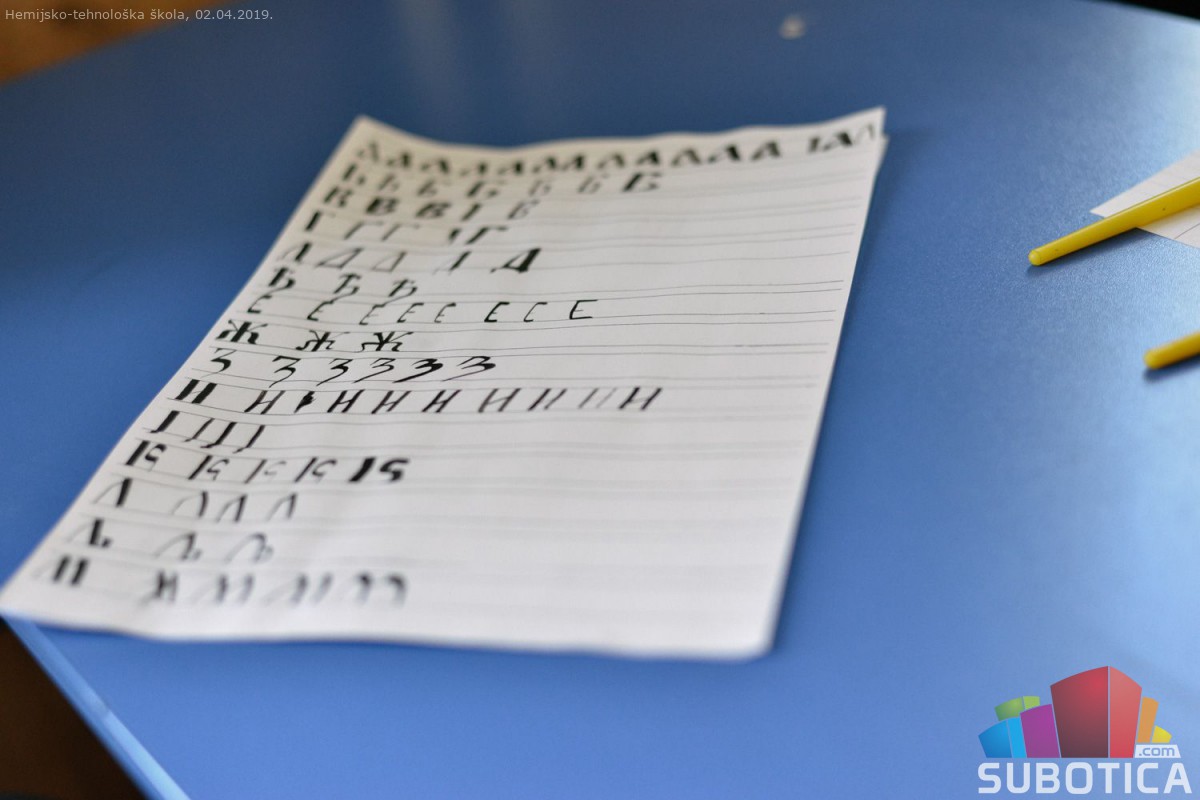 Hemijsko-tehnološka škola, 02.04.2019.
А А А А А А А А А А А А
Б Б Б Б Б Б Б
В В В
Г Г Г Г
Д Д Д Д Д
Ђ Ђ Ђ
Е Е Е Е Е Е Е Е
Ж Ж Ж
З З З З З З
И И И И И И И И И
Ј Ј Ј Ј
К К К К К
Л Л Л Л
Љ Љ Љ
М М М М М
.com
SUBOTICA